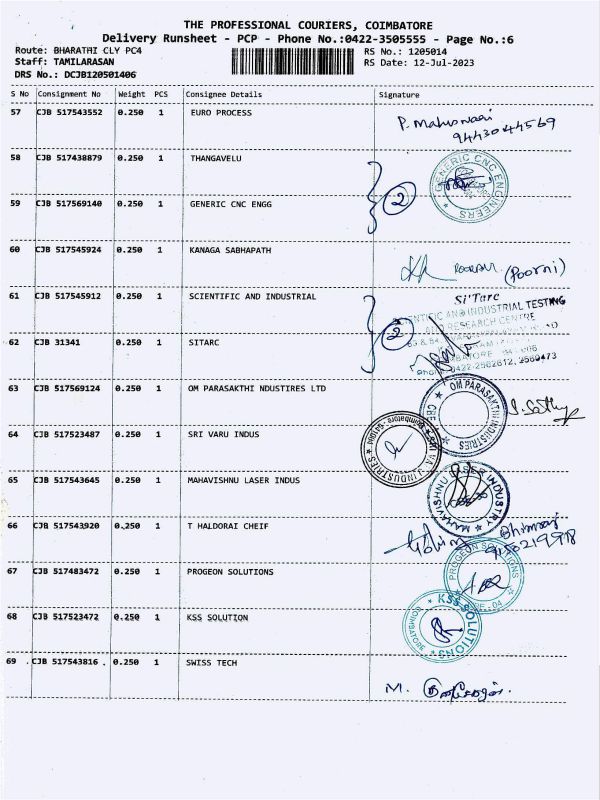 THE PROFESSIONAL COURIERS, COIMBATORE
Delivery Runsheet - PCP - Phone No.:0422-3505555 - Page No.:6
Route: BHARATHI CLY PC4 RS No.: 1205014
Staff: TAMILARASAN RS Date: 12-Jul-2023
DRS No.: DCJB120501406
S No Consignment No Weight PCS Consignee Details Signature
57 CJB 517543552 0.250 1 EURO PROCESS
P. Maheswari
9443044569
58 CJB 517438879 0.250 1 THANGAVELU
2 GENERIC CNC ENGINEERS
59 CJB 517569140 0.250 1 GENERIC CNC ENGG
60 CJB 517545924 0.250 1 KANAGA SABHAPATH
(Poorni)
61 CJB 517545912 0.250 1 SCIENTIFIC AND INDUSTRIAL
Si'Tarc
SCIENTIFIC AND INDUSTRIAL TESTING
RESEARCH CENTRE
2
62 CJB 31341 0.250 1 SITARC
0422-2562612, 2560473
63 CJB 517569124 0.250 1 OM PARASAKTHI NDUSTIRES LTD
OM PARASAKTHI INDUSTRIES
64 CJB 517523487 0.250 1 SRI VARU INDUS
INDUSTRIES
65 CJB 517543645 0.250 1 MAHAVISHNU LASER INDUS
MAHAVISHNU LASER INDUSTRY
66 CJB 517543920 0.250 1 T HALDORAI CHEIF
67 CJB 517483472 0.250 1 PROGEON SOLUTIONS
PROGEON SOLUTIONS
68 CJB 517523472 0.250 1 KSS SOLUTION
KSS SOLUTIONS
COIMBATORE
69 CJB 517543816 0.250 1 SWISS TECH
M.